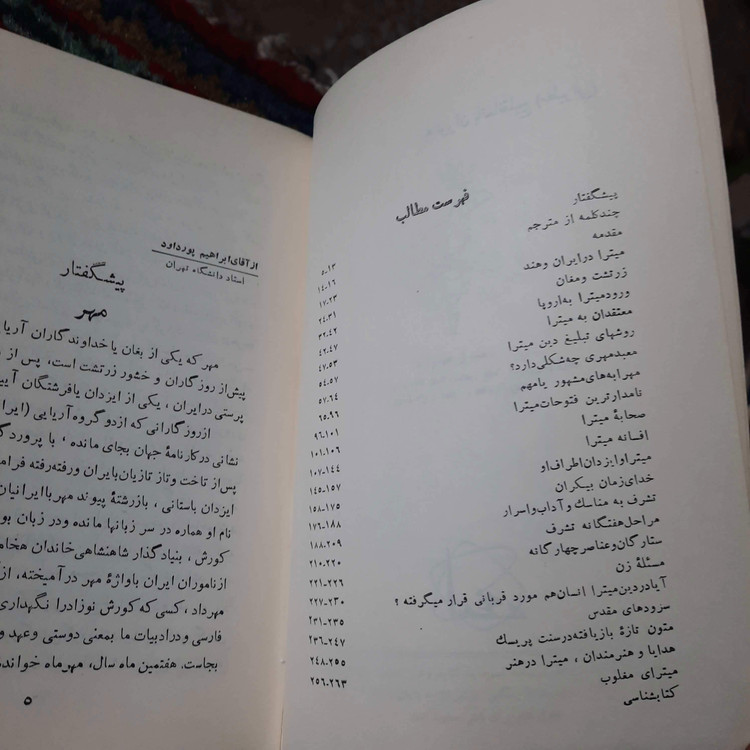 فهرست مطالب
پیشگفتار ۵-۱۳
چندکلمه از مترجم ۱۴-۱۶
مقدمه ۱۷-۲۳
میترا درایران وهند ۲۴-۳۱
زرتشت ومغان ۳۲-۴۲
ورودمیترا به‌اروپا ۴۲-۴۷
معتقدان به میترا ۴۷-۵۳
روشهای تبلیغ دین میترا ۵۴-۵۷
معبدمهری چه‌شکلی‌دارد؟ ۵۷-۶۴
مهرابه‌های‌مشهور یامهم ۶۵-۹۶
نامدارترین فتوحات‌میترا ۹۶-۱۰۱
صحابهٔ میترا ۱۰۱-۱۰۶
افسانه میترا ۱۰۷-۱۴۴
میتراوایزدان‌اطراف‌او ۱۴۵-۱۵۷
خدای‌زمان بیکران ۱۵۸-۱۷۵
تشرف به مناسك وآداب‌واسرار ۱۷۶-۱۸۸
مراحل‌هفتگانه تشرف ۱۸۸-۲۰۹
ستارگان‌وعناصرچهارگانه ۲۱۰-۲۲۰
مسئلهٔ زن ۲۲۱-۲۲۶
آیادردین‌میترا انسان‌هم مورد قربانی قرار میگرفته ؟ ۲۲۷-۲۳۰
سرودهای مقدس ۲۳۱-۲۳۵
متون تازهٔ بازیافته‌درسنت پریسك ۲۳۶-۲۴۷
هدایا و هنرمندان ، میترا درهنر ۲۴۸-۲۵۵
میترای مغلوب ۲۵۶-۲۶۳
کتابشناسی
ازآقای ابراهیم پورداود
استاد دانشگاه تهران
پیشگفتار
مهر
مهر که یکی از بغان یاخداوندگاران آریا
پیش‌از روزگاران و خشور زرتشت است، پس از
پرستی درایران ، یکی از ایزدان یافرشتگان آیی
ازروزگارانی که ازدو گروه آریایی (ایرا
نشانی درکارنامهٔ جهان بجای مانده ، با پروردگ
پس‌از تاخت وتاز تازیان‌بایران ورفته‌رفته فرام
ایزدان باستانی ، بازرشتهٔ پیوند مهرباایرانیان
نام او هماره در سر زبانها مانده ودر زبان بو
کورش ، بنیادگذار شاهنشاهی‌خاندان هخام
ازناموران ایران باواژهٔ مهر درآمیخته، از
مهرداد ، کسی که کورش نوزادرا نگهداری
فارسی ودرادبیات ما بمعنی دوستی وعهد و
بجاست. هفتمین ماه سال، مهرماه خوانده
۵